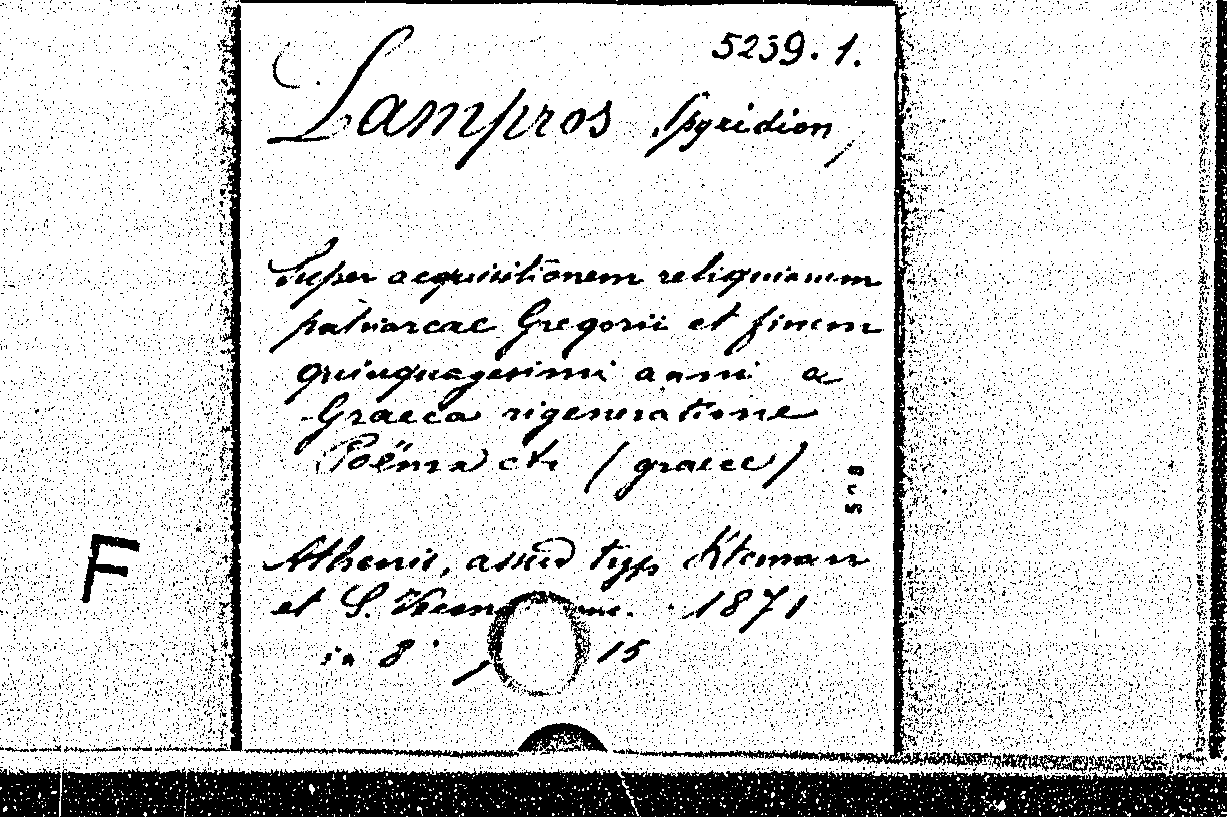 5239.1.
Lampros Spyridion,
Super acquisitionem reliquiarum
patriarcae Gregorii et finem
quinquagesimi anni a
Graeca rigeneratione
Poëma etc (graece)
Athenis, typ
et S. 1871
in 8° 15
F